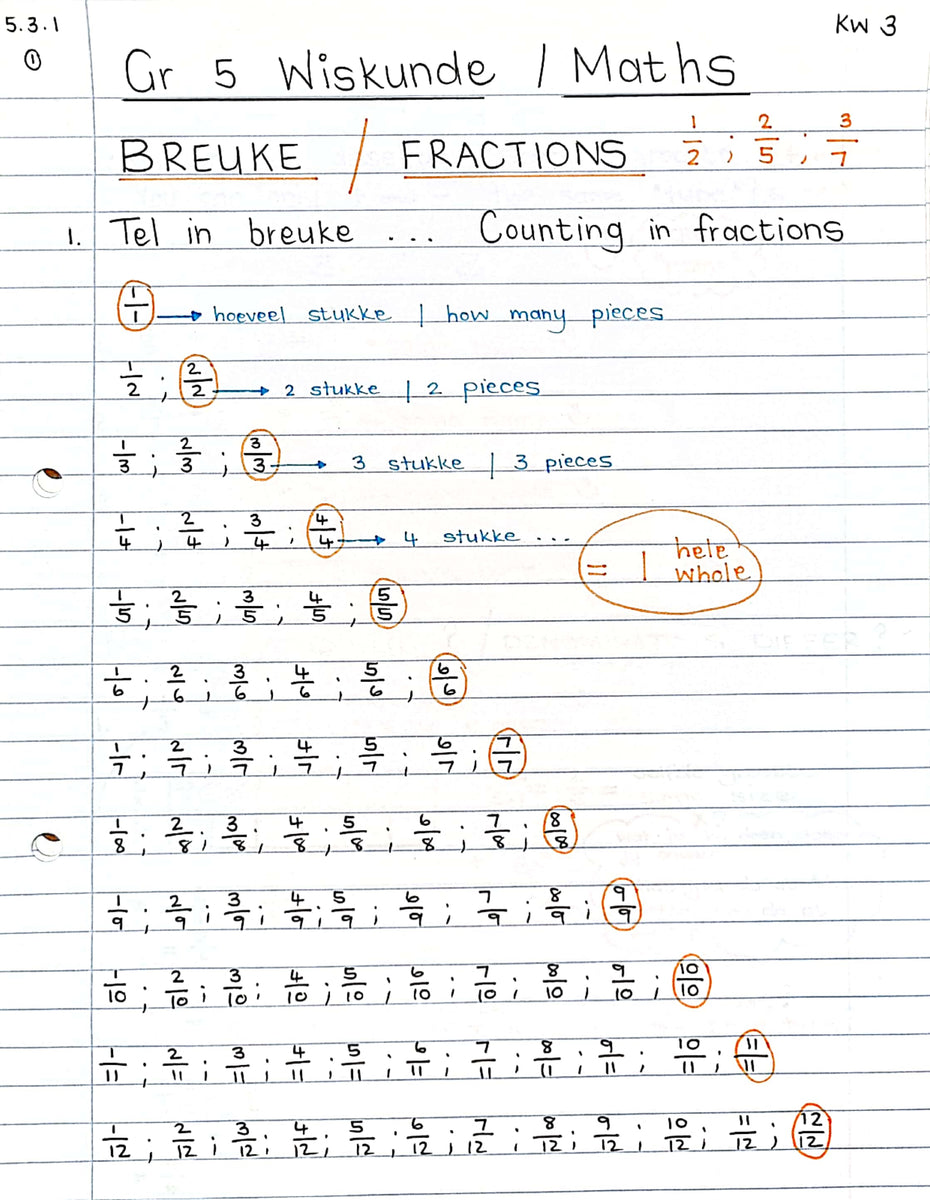 5.3.1 KW 3
①
Gr 5 Wiskunde / Maths
BREUKE / FRACTIONS 1/2 ; 2/5 ; 3/7
1. Tel in breuke ... Counting in fractions
1/1 → hoeveel stukke | how many pieces
1/2 ; 2/2 → 2 stukke | 2 pieces
1/3 ; 2/3 ; 3/3 → 3 stukke | 3 pieces
1/4 ; 2/4 ; 3/4 ; 4/4 → 4 stukke ...
= 1 hele
whole
1/5 ; 2/5 ; 3/5 ; 4/5 ; 5/5
1/6 ; 2/6 ; 3/6 ; 4/6 ; 5/6 ; 6/6
1/7 ; 2/7 ; 3/7 ; 4/7 ; 5/7 ; 6/7 ; 7/7
1/8 ; 2/8 ; 3/8 ; 4/8 ; 5/8 ; 6/8 ; 7/8 ; 8/8
1/9 ; 2/9 ; 3/9 ; 4/9 ; 5/9 ; 6/9 ; 7/9 ; 8/9 ; 9/9
1/10 ; 2/10 ; 3/10 ; 4/10 ; 5/10 ; 6/10 ; 7/10 ; 8/10 ; 9/10 ; 10/10
1/11 ; 2/11 ; 3/11 ; 4/11 ; 5/11 ; 6/11 ; 7/11 ; 8/11 ; 9/11 ; 10/11 ; 11/11
1/12 ; 2/12 ; 3/12 ; 4/12 ; 5/12 ; 6/12 ; 7/12 ; 8/12 ; 9/12 ; 10/12 ; 11/12 ; 12/12